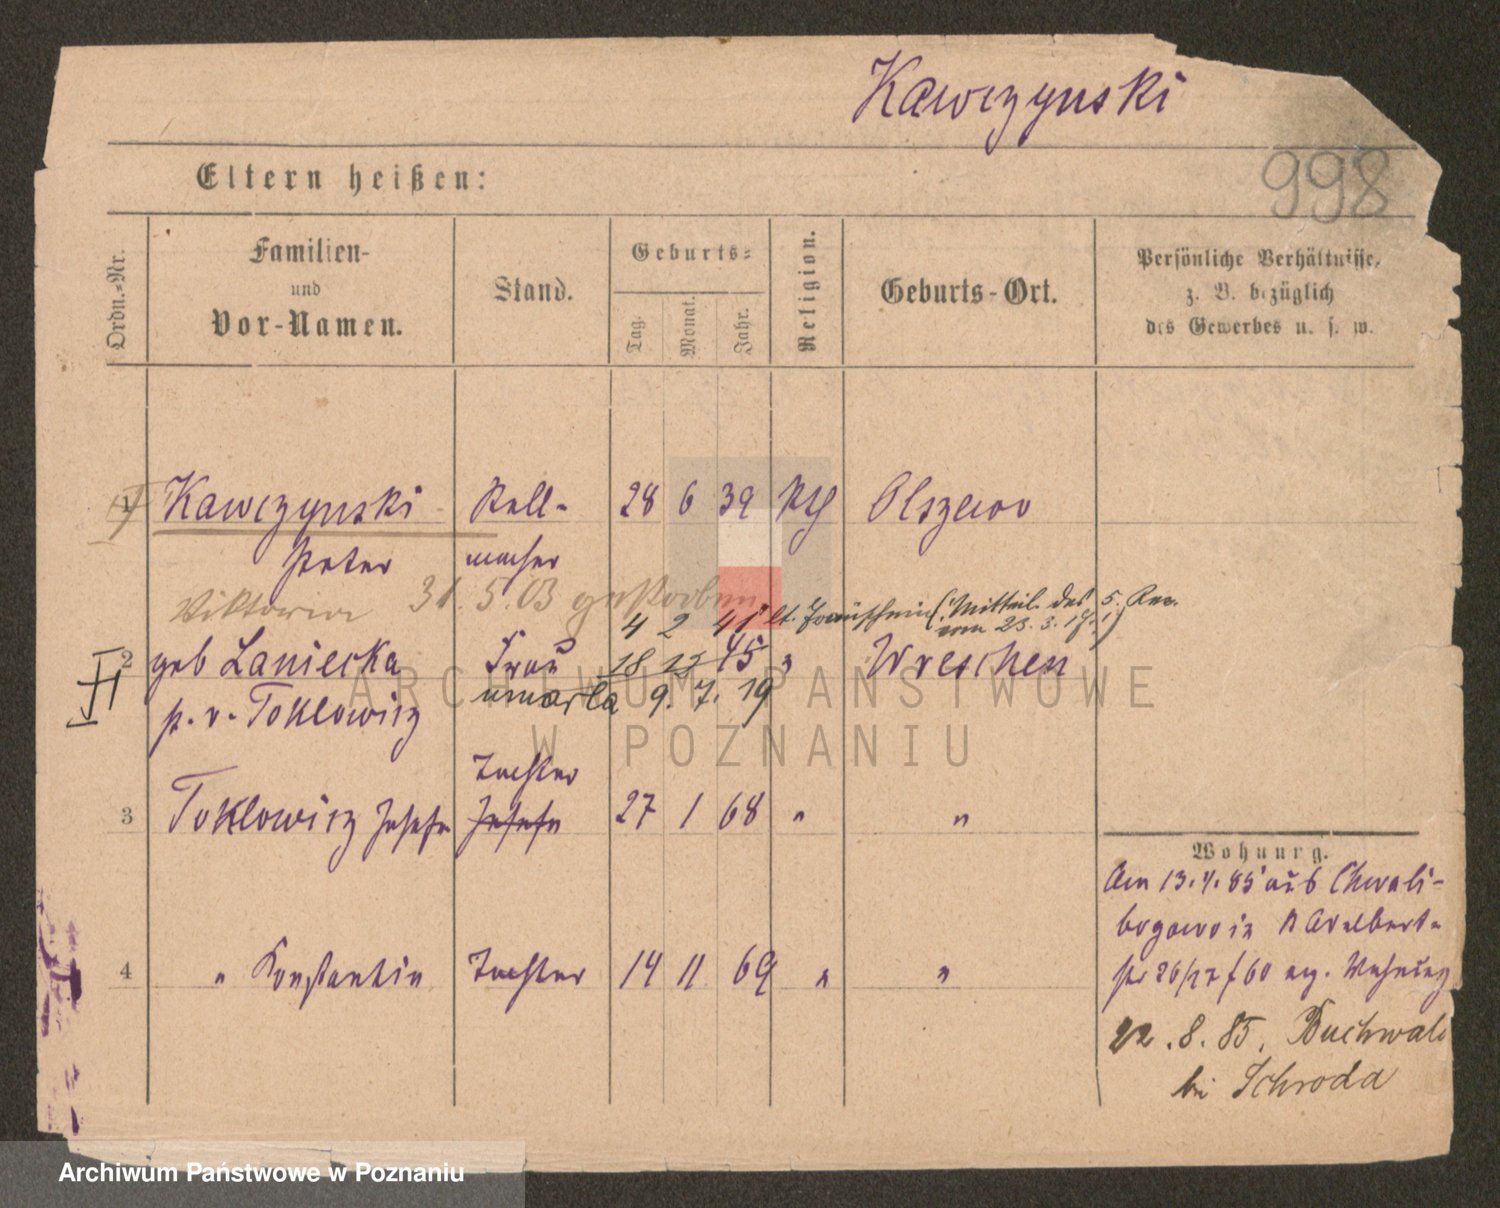 Kawczynski
998
Eltern heißen:
Ordn.-Nr.
Familien-
und
Vor-Namen.
Stand.
Geburts-
Tag.
Monat.
Jahr.
Religion.
Geburts-Ort.
Persönliche Verhältnisse,
z. B. bezüglich
des Gewerbes u. s. w.
1 Kawczynski Stell- 28 6 39 kth Olszewo
Peter macher
31.5.03 gestorben
Viktoria 4 2 41 lt. Trauschein (Mitteil. des 5. Rev.
vom 23. 3. 17.)
2 geb Laniecka Frau 18 12 45 " Wreschen
p. v. Toklowicz umarła 9. 7. 19
Tochter
3 Toklowicz Josefa Josefa 27 1 68 " "
4 " Konstantin Tochter 14 11 69 " "
Wohnung.
Am 13.4.85 aus Chwali-
bogowo in Adalbert-
str 26/27 f 60 Wohnung
22.8.85. Buchwald
bei Schroda
ARCHIWUM PAŃSTWOWE
W POZNANIU
Archiwum Państwowe w Poznaniu